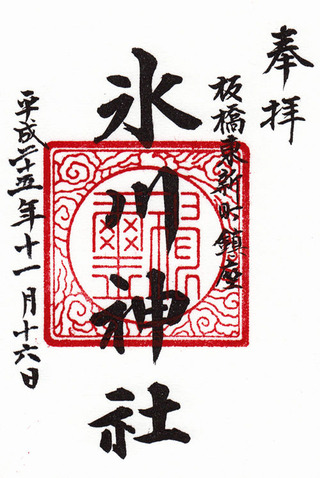 奉拝
板橋東新町鎮座
氷川神社
平成二十五年十一月十六日